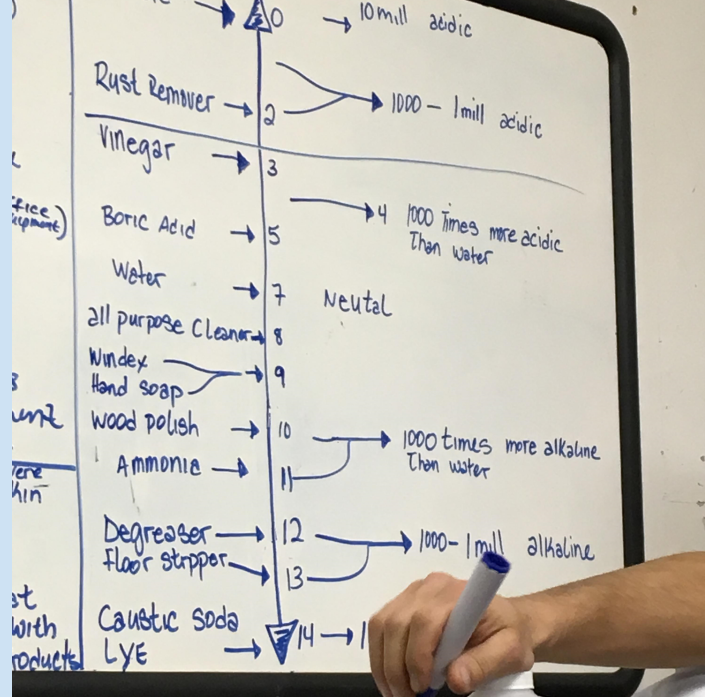 0 → 10 mill acidic
Rust Remover → 2
1000 - 1mill acidic
Vinegar → 3
4 1000 times more acidic
Than water
Boric Acid → 5
Water → 7 Neutal
all purpose Cleaner → 8
Windex
Hand soap → 9
Wood polish → 10
1000 times more alkaline
Than water
Ammonia → 11
Degreaser → 12
1000 - 1mill alkaline
Floor strpper → 13
Caustic soda
LYE → 14 →
with